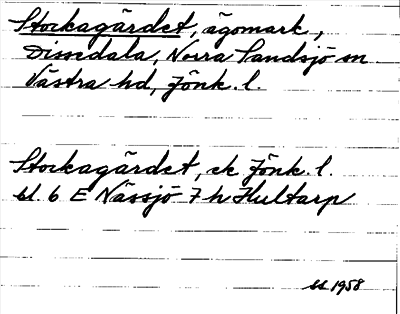 Stockagärdet, ägomark,
Dissedala, Norra Sandsjö sn
Västra hd, Jönk. l.
Stockagärdet, ek Jönk. l.
bl. 6 E Nässjö 7 h Hultarp
1958